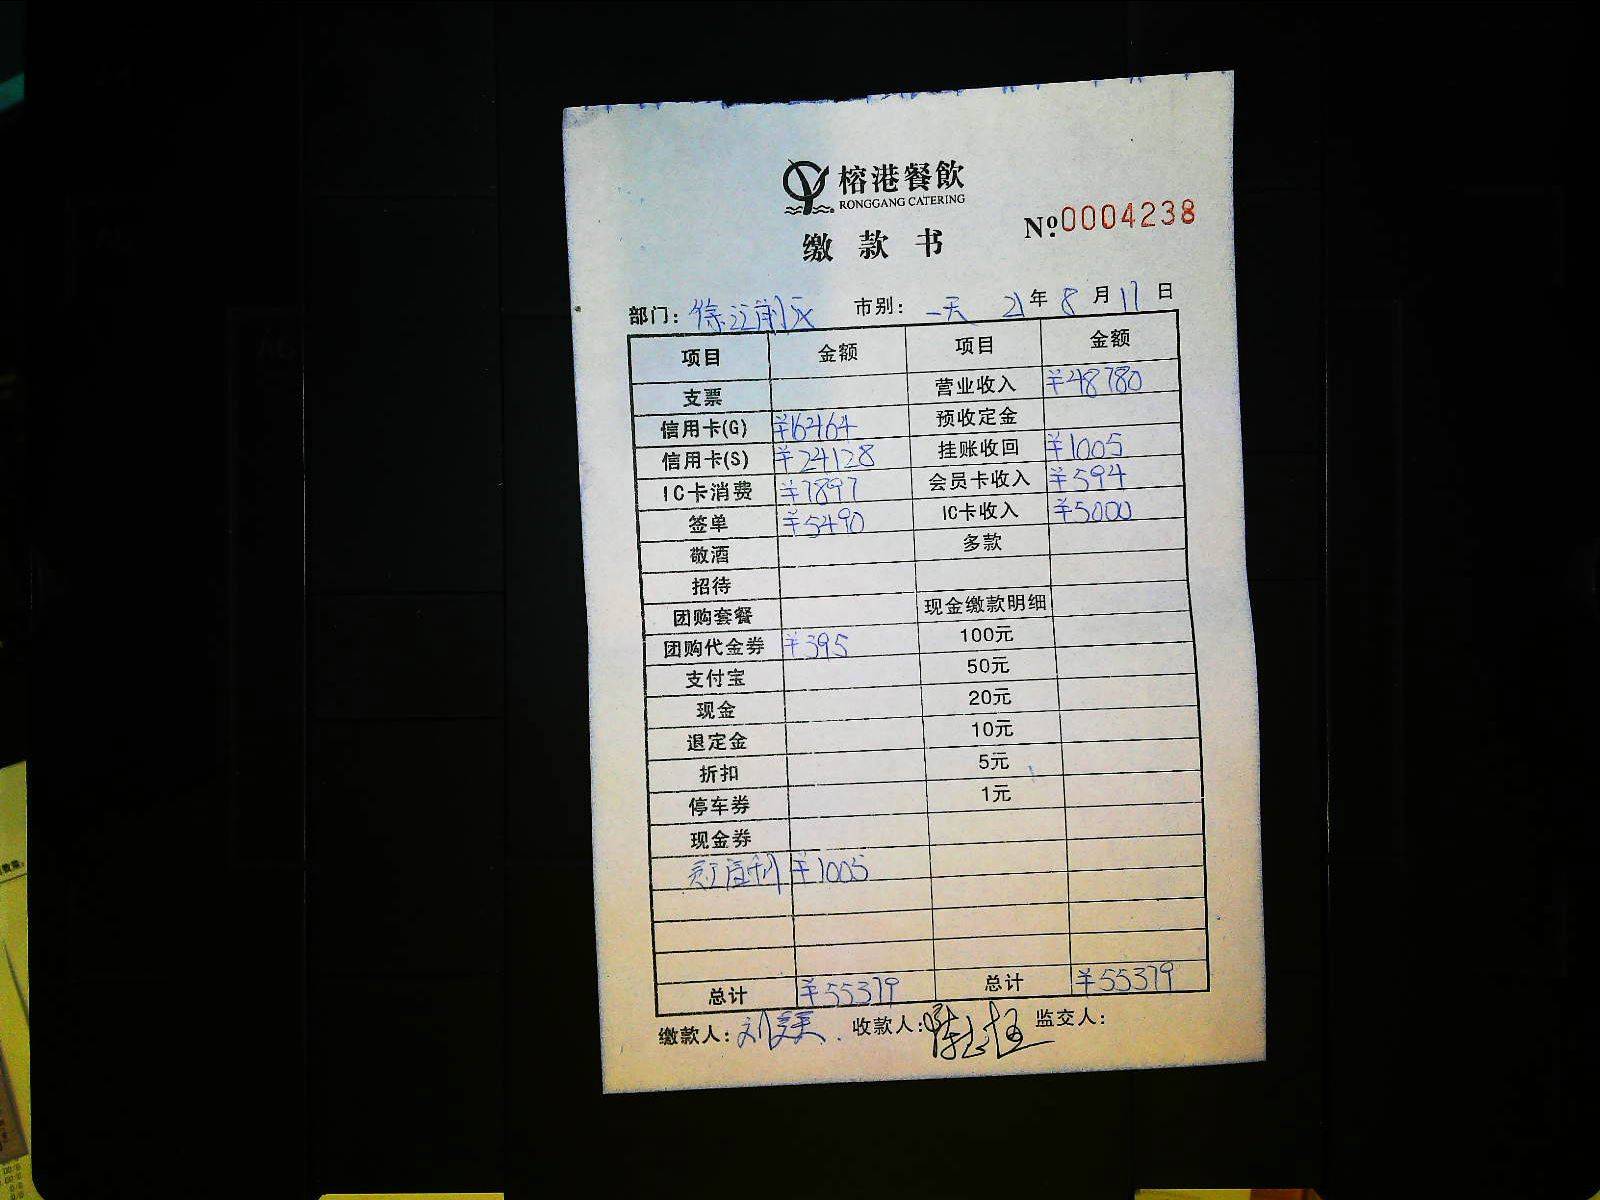 榕港餐飲
RONGGANG CATERING
№:0004238
缴款书
部门: 徐汇 市别: 一天 21年8月11日
项目 金额 项目 金额
支票 营业收入 ¥48780
信用卡(G) ¥16464 预收定金
信用卡(S) ¥24128 挂账收回 ¥1005
IC卡消费 ¥7897 会员卡收入 ¥594
签单 ¥5490 IC卡收入 ¥5000
敬酒 多款
招待
团购套餐 现金缴款明细
团购代金券 ¥395 100元
支付宝 50元
现金 20元
退定金 10元
折扣 5元
停车券 1元
现金券
¥1005
总计 ¥55379 总计 ¥55379
缴款人: 刘 收款人: 陈 监交人: